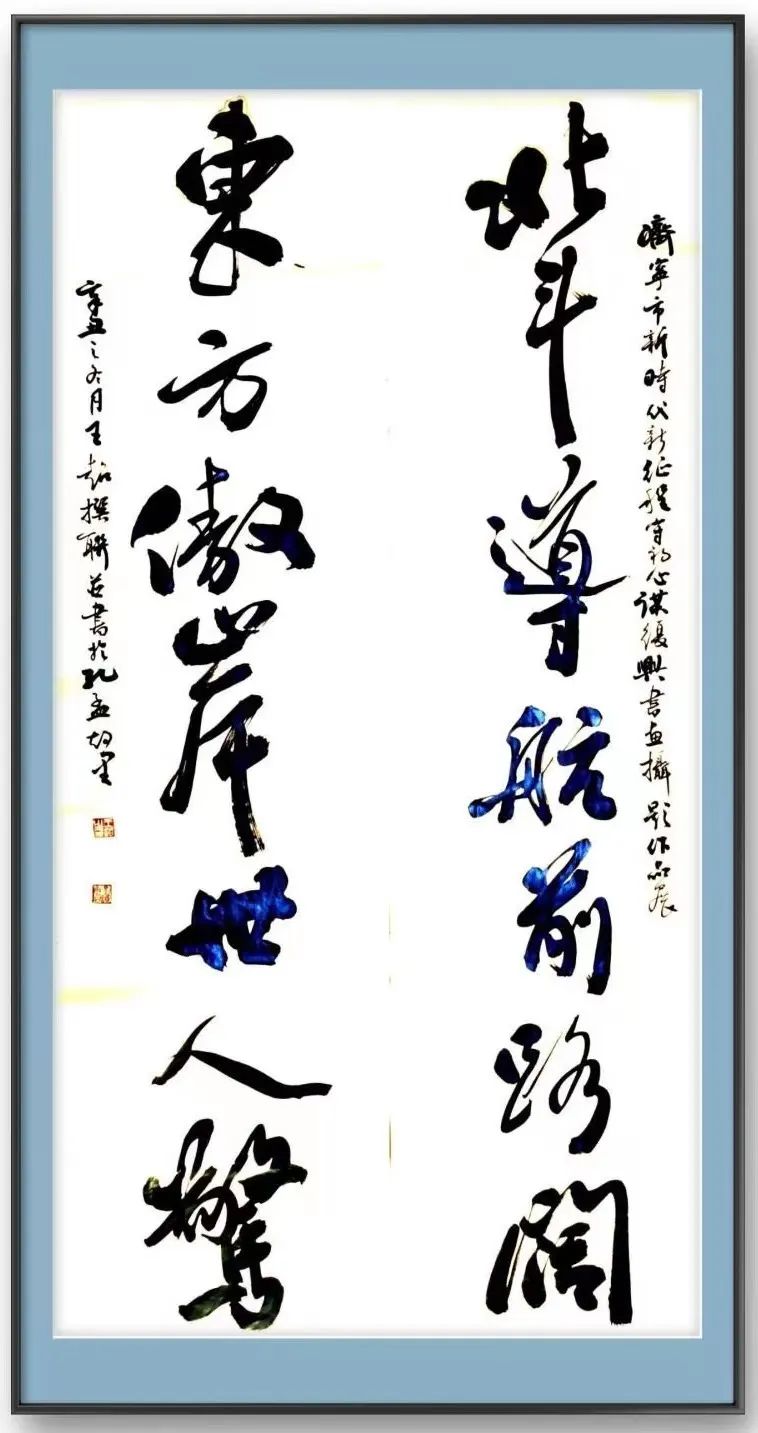 濟寧市新時代新征程守初心謀復興書畫攝影作品展
北斗導航前路闊
東方傲岸世人驚
辛丑之冬月王超撰聯並書於孔孟故里